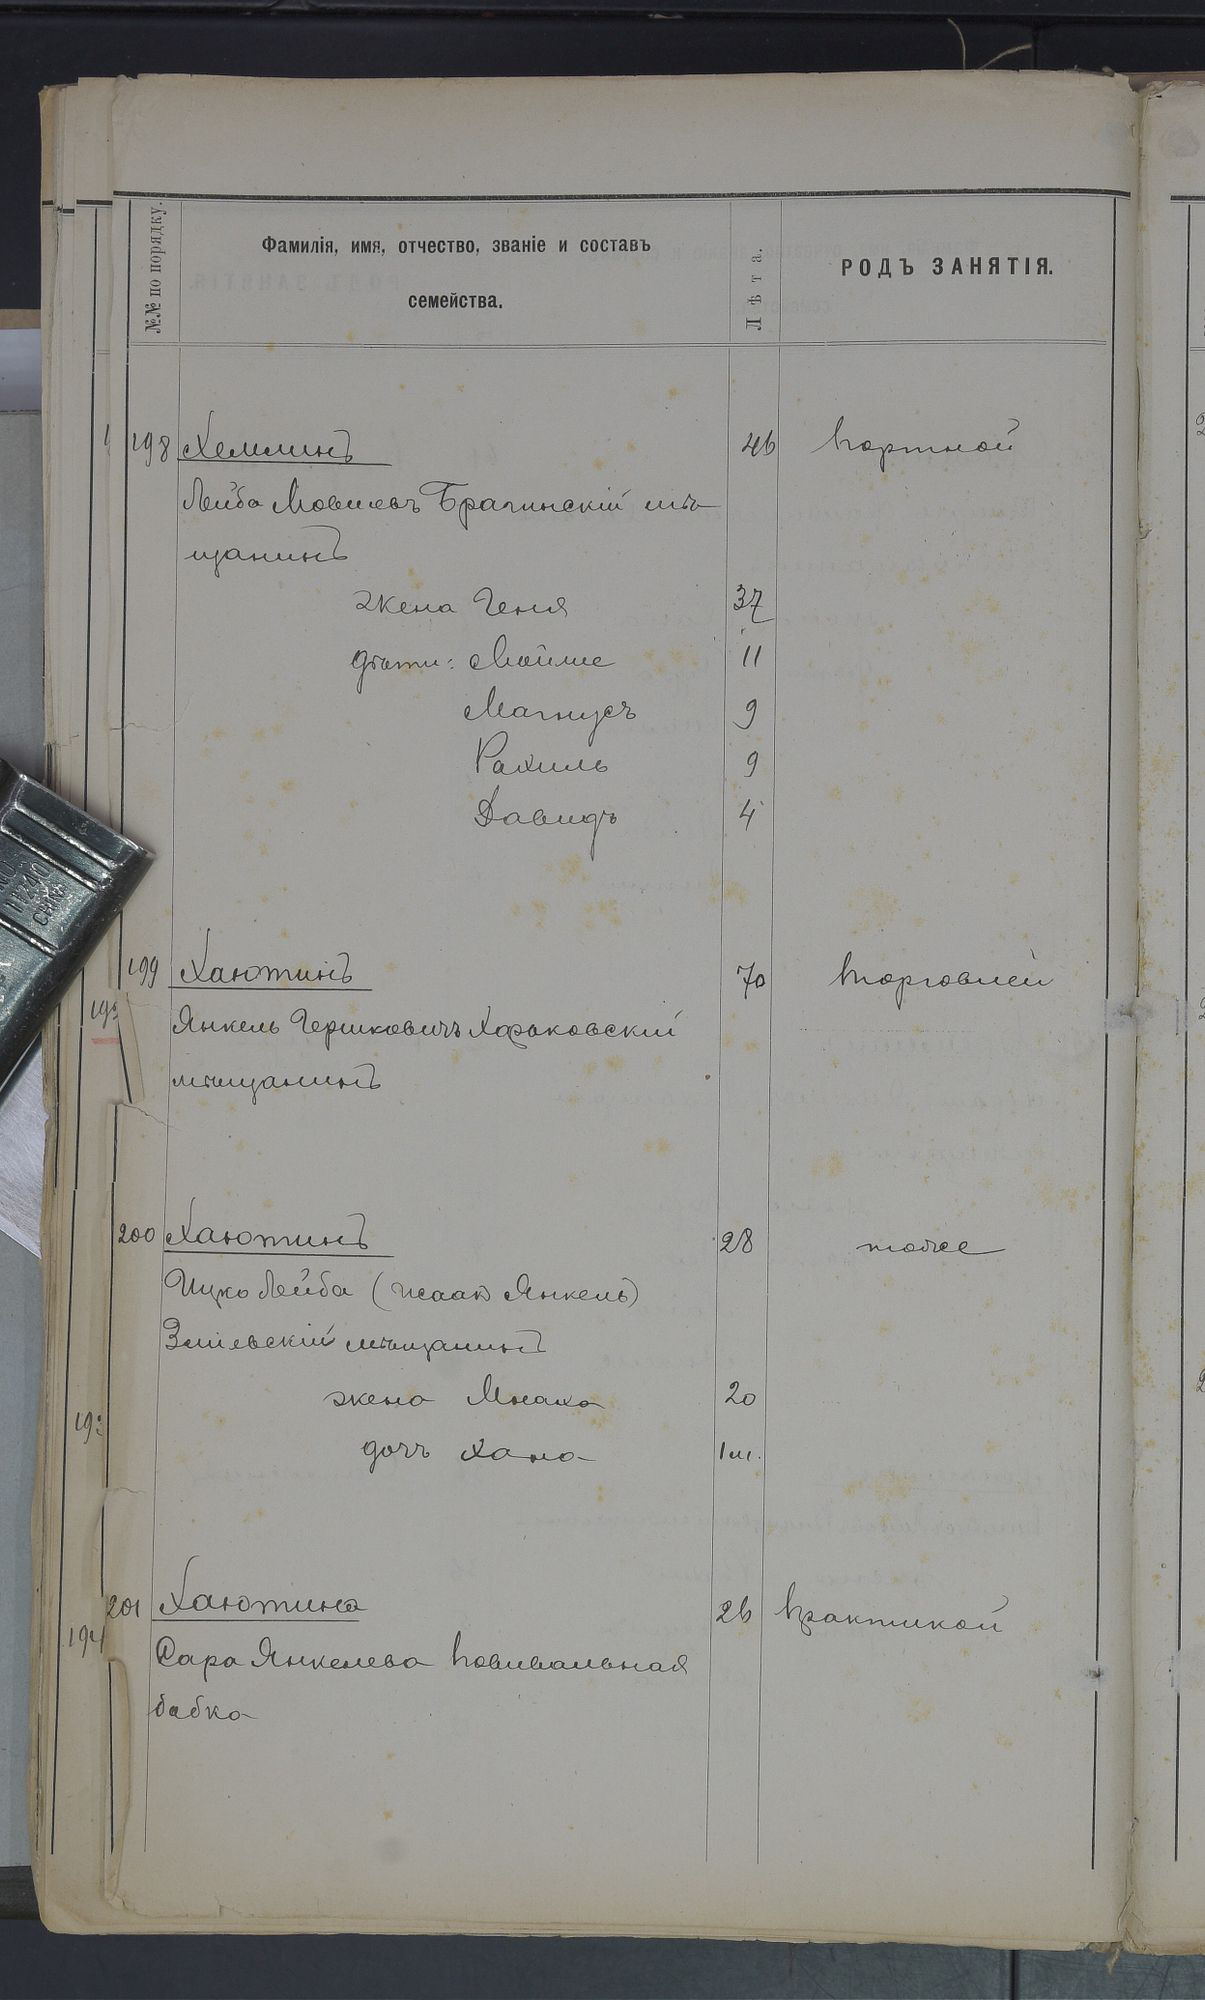 №№ по порядку.
Фамилія, имя, отчество, званіе и составъ
семейства.
Лѣта.
РОДЪ ЗАНЯТІЯ.
198 Хемлинъ 46 портной
Лейба Мовшевъ Брагинскій мѣ-
щанинъ
жена Геня 37
дѣти: Мойше 11
Магнусъ 9
Рахиль 9
Давидъ 4
199 Хаютинъ 70 торговлей
Янкель Гершковичъ Харьковскій
мѣщанинъ
200 Хаютинъ 28 тоже
Ицко Лейба (Исаакъ Янкель)
Зміевскій мѣщанинъ
жена 20
дочь Хана 1 м.
201 Хаютина 26 практикой
Сара Янкелева повивальная
бабка
193
194
CHINA